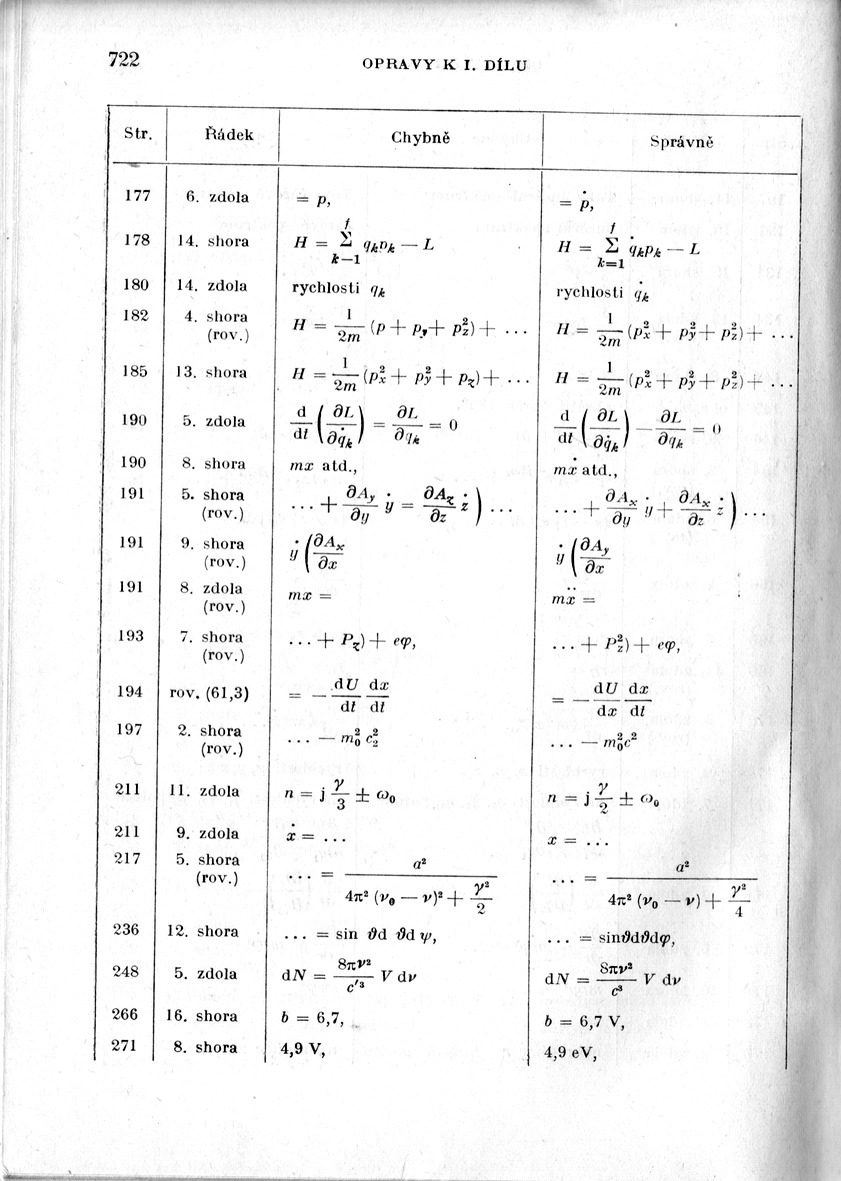 722 OPRAVY K I. DÍLU
Str. Řádek Chybně Správně
177 6. zdola = p, = ṗ,
178 14. shora H = Σ_{k—1}^{f} qₖpₖ — L H = Σ_{k=1}^{f} q̇ₖpₖ — L
180 14. zdola rychlosti qₖ rychlosti q̇ₖ
182 4. shora (rov.) H = 1/2m (p + p_y + p_z²) + ... H = 1/2m (p_x² + p_y² + p_z²) + ...
185 13. shora H = 1/2m (p_x² + p_y² + p_z) + ... H = 1/2m (p_x² + p_y² + p_z²) + ...
190 5. zdola d/dt (∂L/∂q̇ₖ) = ∂L/∂qₖ = 0 d/dt (∂L/∂q̇ₖ) — ∂L/∂qₖ = 0
190 8. shora mx atd., mẋ atd.,
191 5. shora (rov.) ... + ∂A_y/∂y ẏ = ∂A_z/∂z ż) ... ... + ∂A_x/∂y ẏ + ∂A_x/∂z ż) ...
191 9. shora (rov.) ẏ (∂A_x/∂x ẏ (∂A_y/∂x
191 8. zdola (rov.) mx = mẍ =
193 7. shora (rov.) ... + P_z) + eφ, ... + P_z²) + eφ,
194 rov. (61,3) = — dU/dt dx/dt = — dU/dx dx/dt
197 2. shora (rov.) ... — m₀² c₂² ... — m₀²c²
211 11. zdola n = j γ/3 ± ω₀ n = j γ/2 ± ω₀
211 9. zdola ẋ = ... x = ...
217 5. shora (rov.) ... = a²/(4π² (ν₀ — ν)² + γ²/2) ... = a²/(4π² (ν₀ — ν) + γ²/4)
236 12. shora ... = sin ϑd ϑd ψ, ... = sinϑdϑdφ,
248 5. zdola dN = 8πν²/c′³ V dν dN = 8πν²/c³ V dν
266 16. shora b = 6,7, b = 6,7 V,
271 8. shora 4,9 V, 4,9 eV,